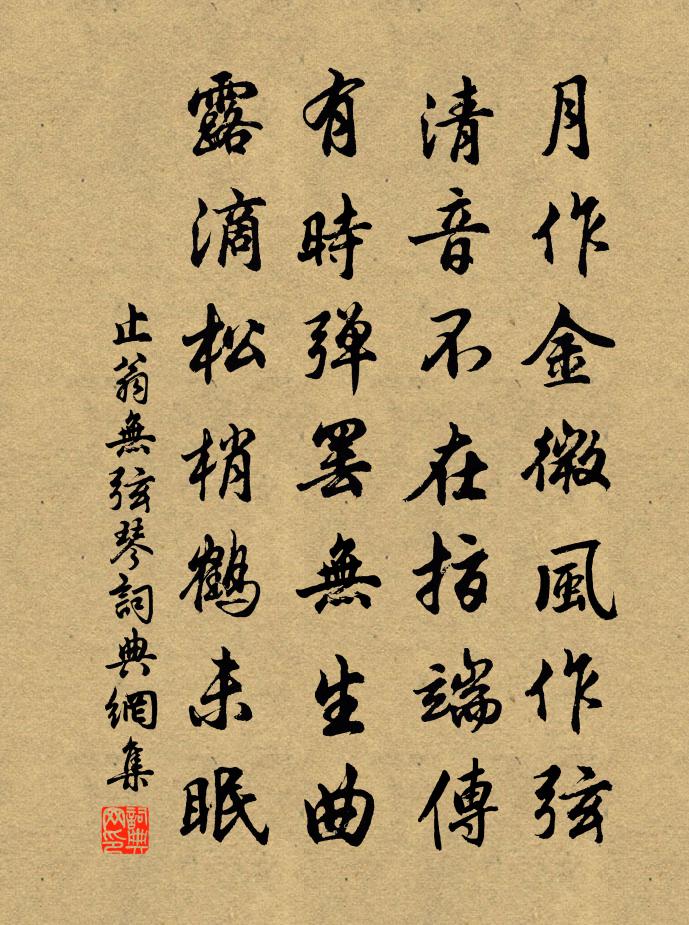 月作金微風作弦
清音不在指端傳
有時彈罷無生曲
露滴松梢鶴未眠
止翁無弦琴詞典網集
詞典
网印